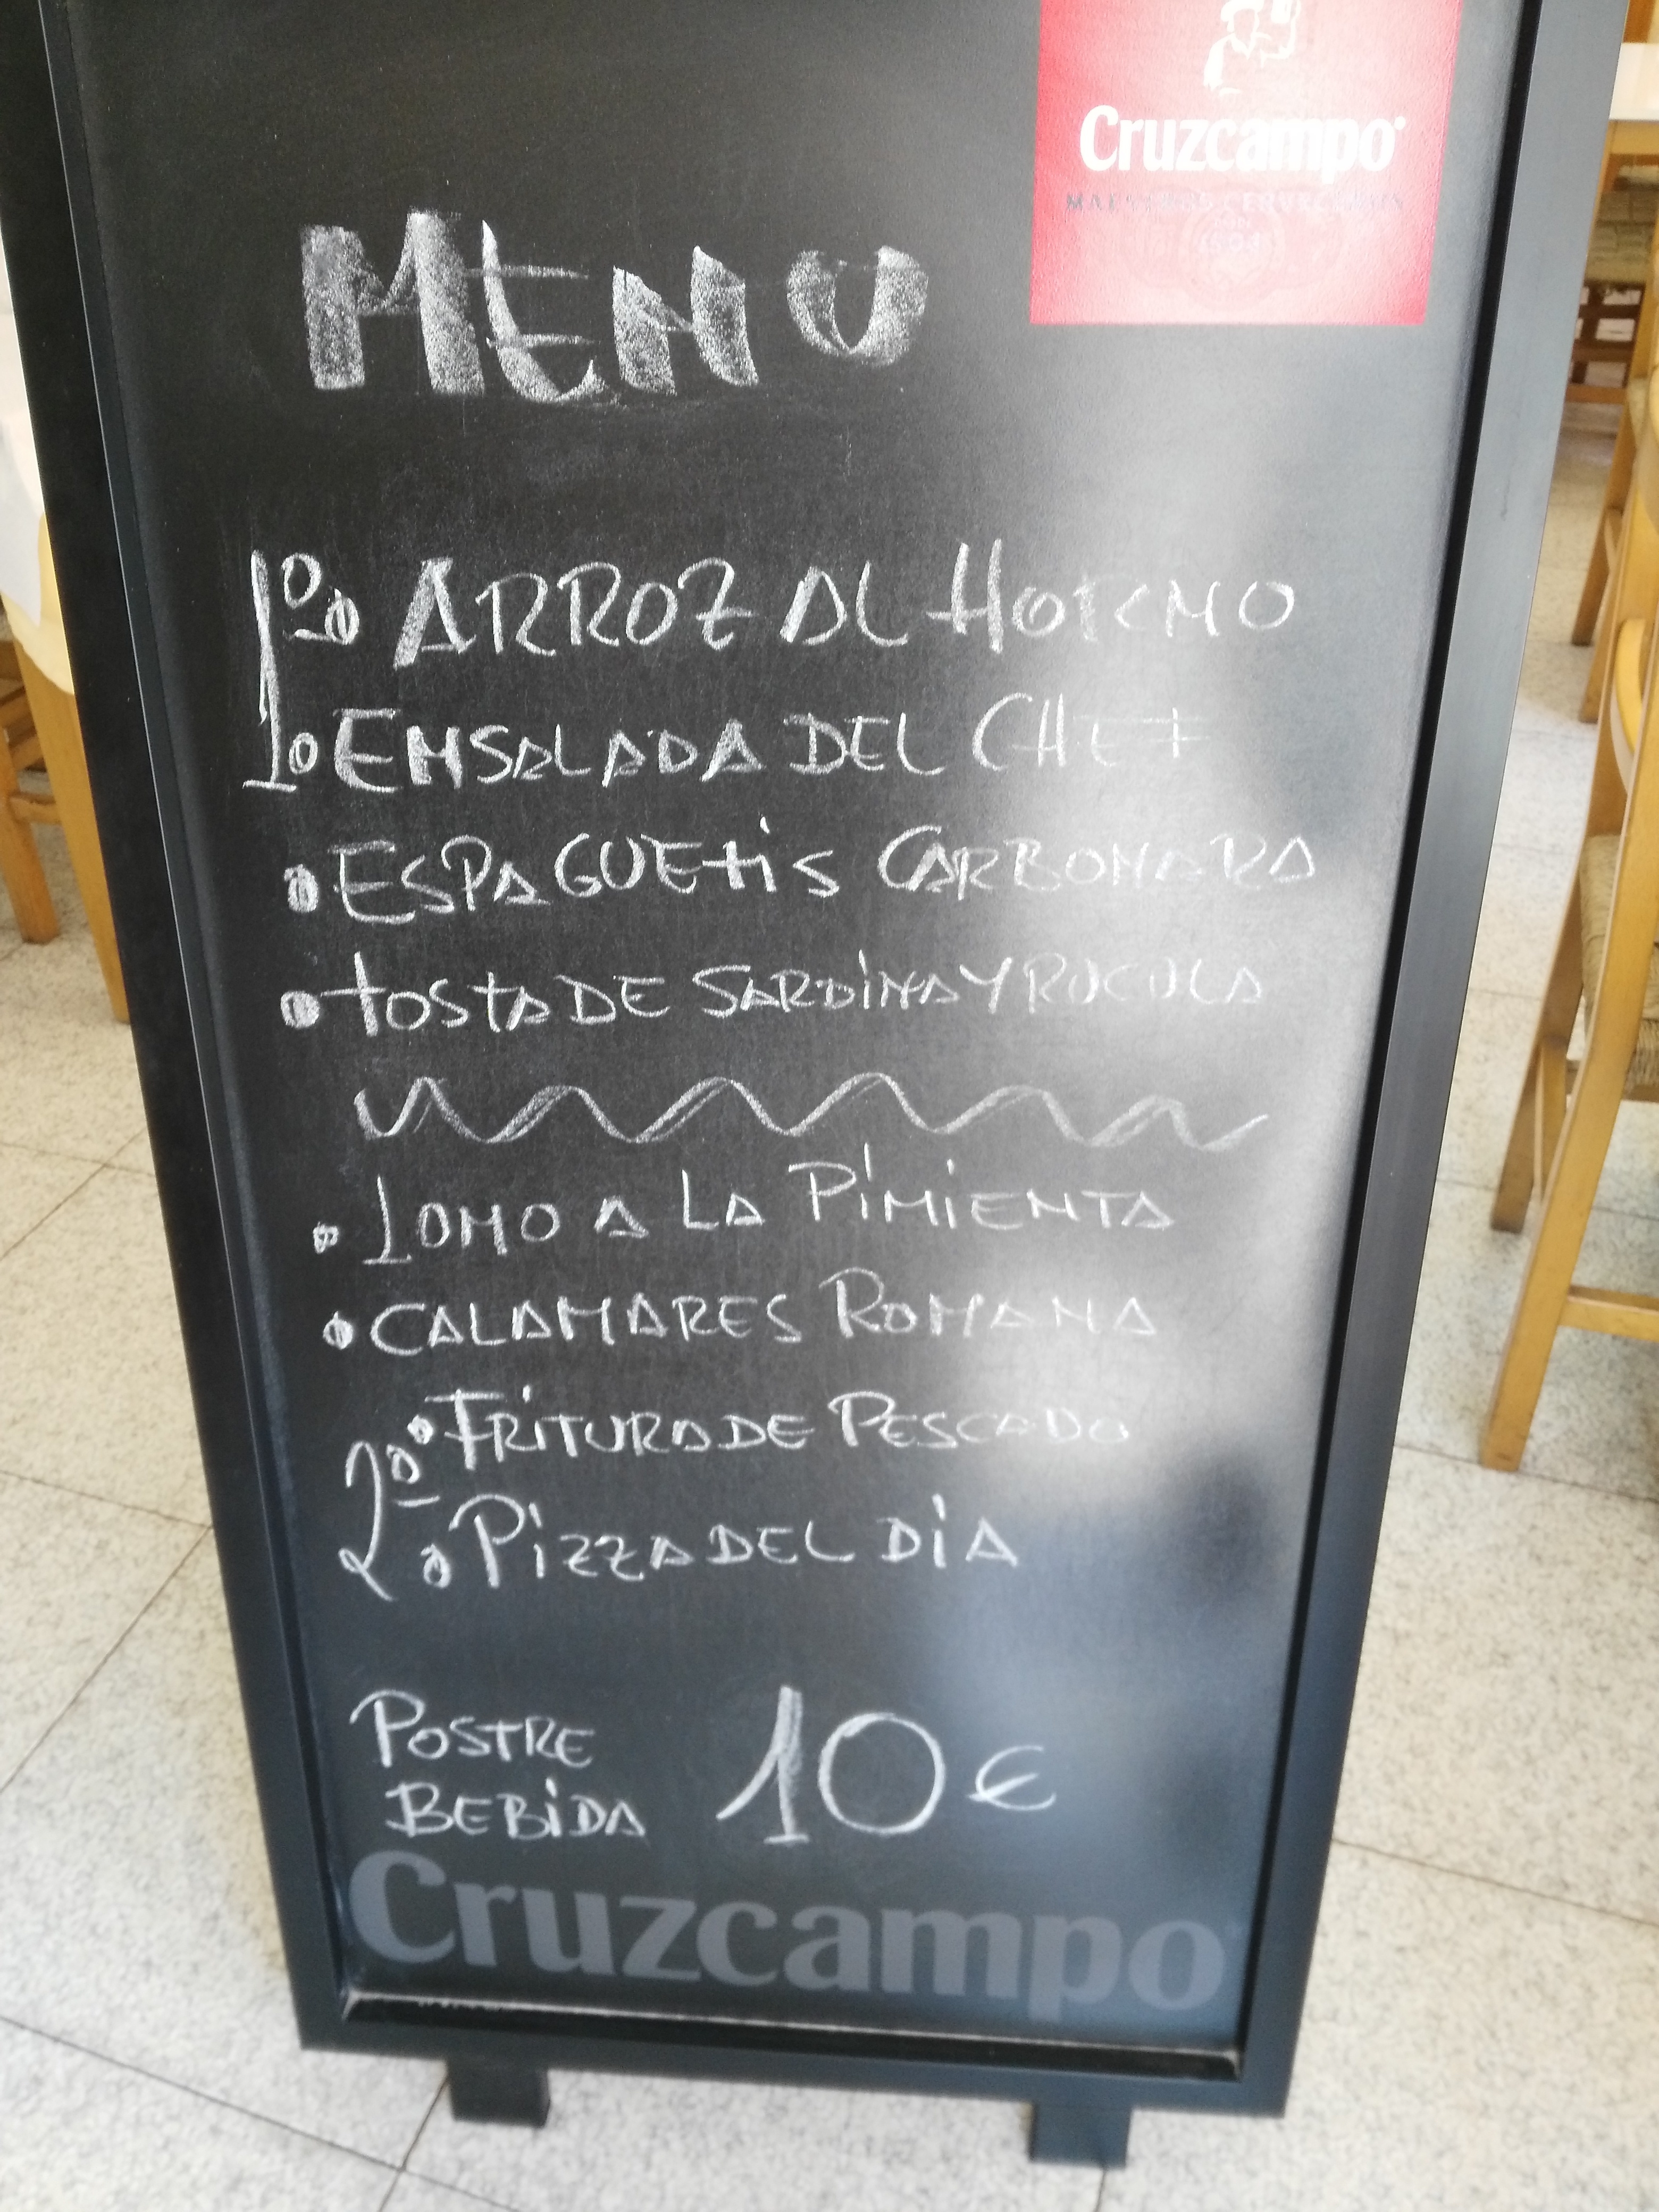 Cruzcampo
MAESTROS CERVECEROS
1904
MENU
1º • ARROZ AL HORNO
• ENSALADA DEL CHEF
• ESPAGUETIS CARBONARA
• TOSTA DE SARDINA Y RUCULA
• LOMO A LA PIMIENTA
• CALAMARES ROMANA
2º • FRITURA DE PESCADO
• PIZZA DEL DIA
POSTRE
BEBIDA 10€
Cruzcampo